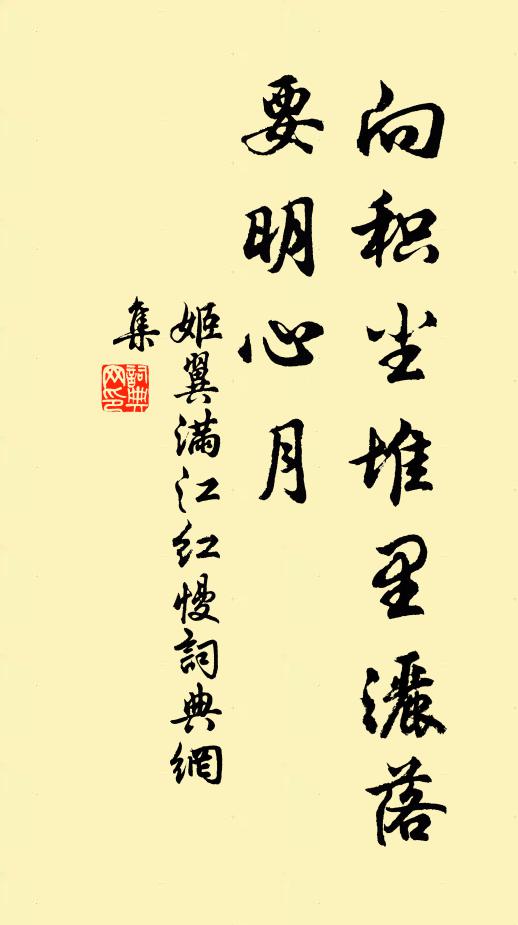 向积尘堆里灑落
要明心月
姬翼满江红慢詞典網
集
詞典網印